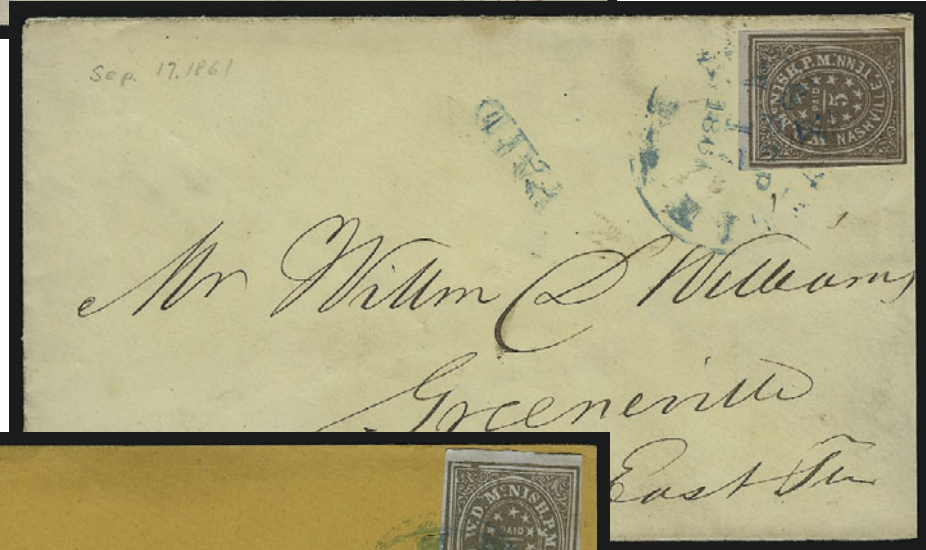 Sep. 17. 1861
PAID
1861
W.D. McNISH. P.M.
NASHVILLE, TENN
PAID
5
Mr Willm D Williams
Greeneville
East Ten
W.D. McNISH. P.M.
PAID